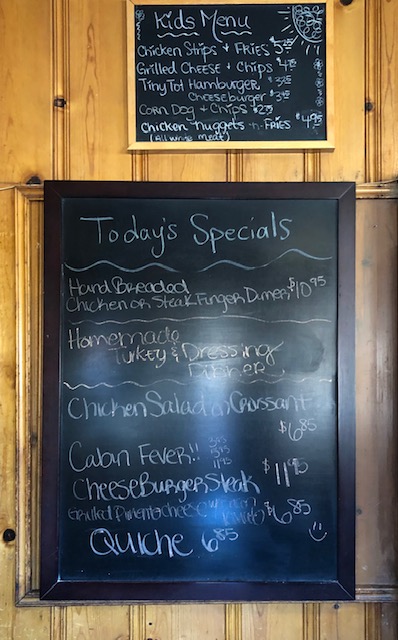 Kids Menu
Chicken Strips & FRIES
Grilled Cheese & Chips
Tiny Tot Hamburger
Cheeseburger
Corn Dog & Chips
Chicken Nuggets -n- FRIES $4.95
(All white meat)
Today's Specials
Hand Breaded
Chicken or Steak Finger Dinner $10.95
Homemade
Turkey & Dressing
Dinner
Chicken Salad on Croissant
$6.85
Cabin Fever!!
Cheese Burger Steak $11.95
Grilled Pimento Cheese $6.85
Quiche 6.85